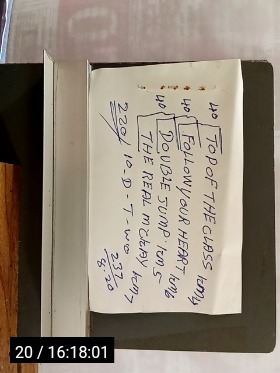 40 TOP OF THE CLASS
40 FOLLOW YOUR HEART
40 DOUBLE JUMP
40 THE REAL
220/ 10-D-T-WO
237
8.20
20 / 16:18:01